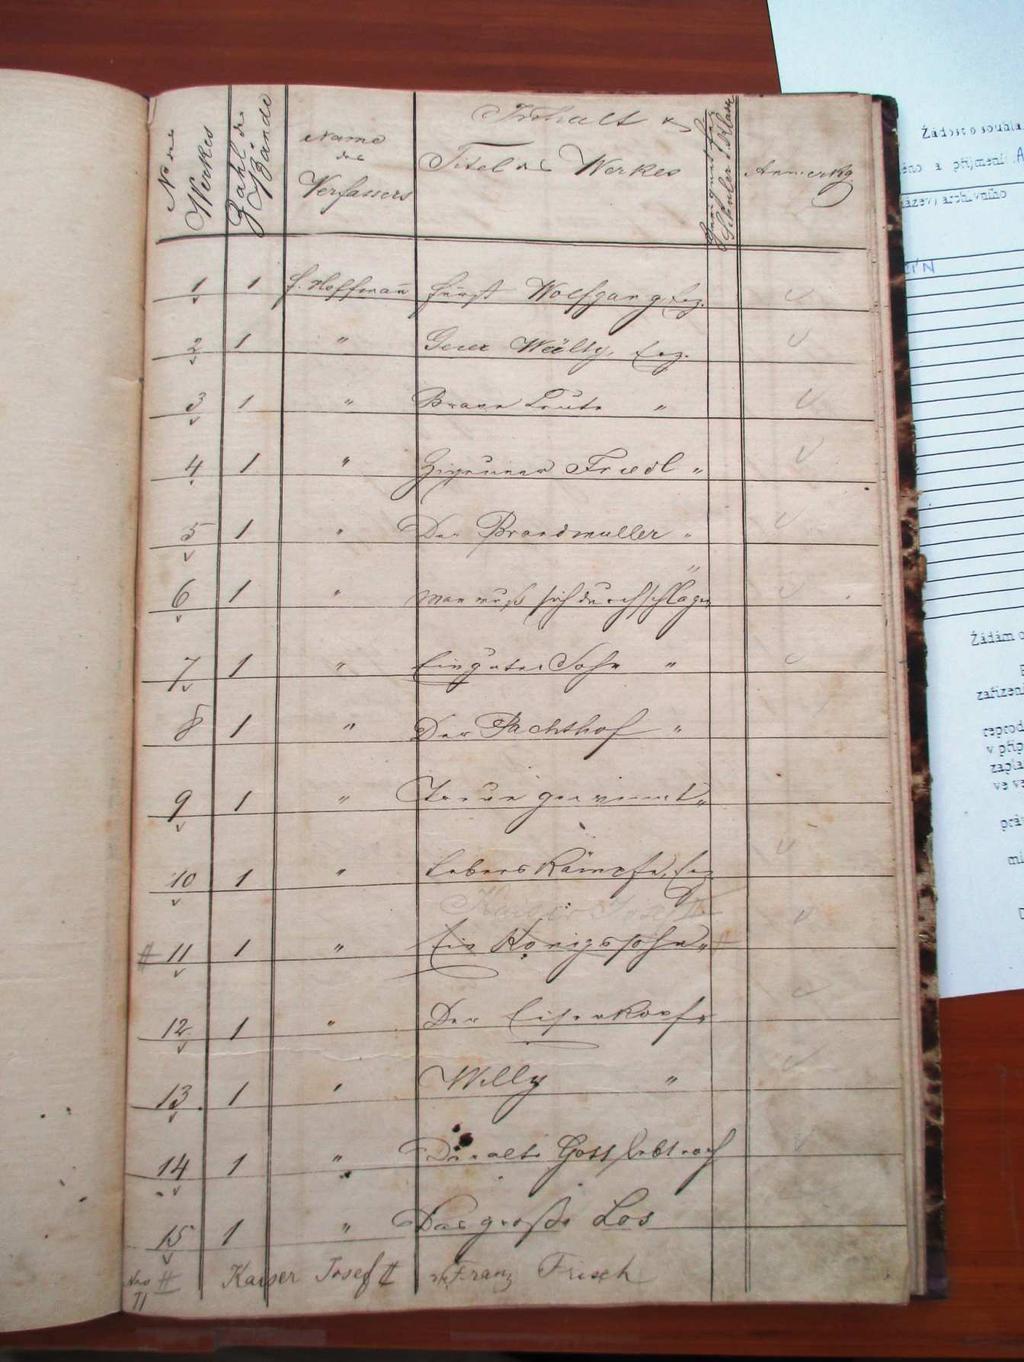 No des Werkes | Zahl der Bände | Name des Verfassers | Inhalt & Titel des Werkes | Geeignet für Schüler d. Klasse | Anmerkg
1 1 f. Hoffmañ Fürst Wolfgang, Erz.
2 1 " Gerer Wälty, Erz.
3 1 " Brave Leute "
4 1 " Zigeuner Friedl "
5 1 " Der Brandmüller "
6 1 " Man muß sich durchschlagen "
7 1 " Ein guter Sohn "
8 1 " Der Pachthof "
9 1 " Treue gewinnt "
10 1 " Lebenskämpfe, Erz
Kaiser Josef II.
# 11 1 " Ein Königssohn " #
12 1 " Der Eisenkopf "
13 1 " Willy "
14 1 " Der alte Gott lebt noch
15 1 " Das große Los
Nro 11 # Kaiser Josef II v. Franz Frisch
Žádost o souhla
éno a příjmení: A
ázev) archivního
Žádám o
zařízení
reprod
v příp
zapla
ve ve
prá